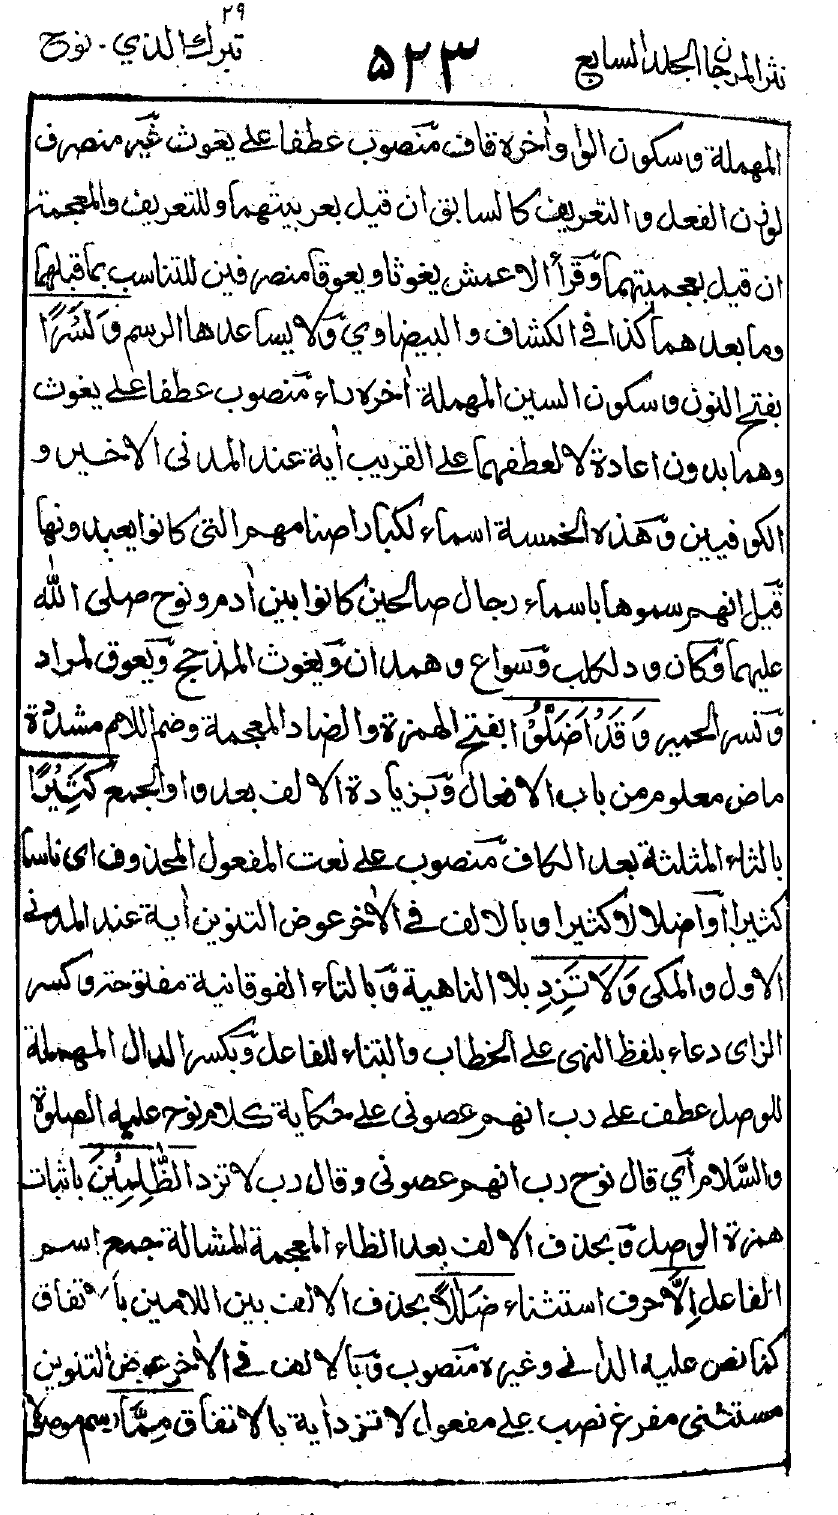 نثر المرجان الجلد السابع
٥٢٣
تبرك الذي ٢٩ - نوح
المهملة و سكون الواو اخره قاف منصوب عطفا على يغوث غير منصرف
لوزن الفعل و التعريف كالسابق ان قيل بعربيتهما و للتعريف والعجمة
ان قيل بعجميتهما وقرأ الاعمش يغوثا و يعوقا منصرفين للتناسب بما قبلهما
وما بعد هما كذا في الكشاف و البيضاوي ولا يساعدها الرسم وَ نَسْرًا
بفتح النون و سكون السين المهملة اخره راء منصوب عطفا على يغوث
وهما بدون اعادة لا لعطفهما على القريب اية عند المدني الاخير و
الكوفيين و هذه الخمسة اسماء لكبار اصنامهم التي كانوا يعبدونها
قيل انهم سموها باسماء رجال صالحين كانوا بين ادم و نوح صلى الله
عليهما وكان ود لكلب و سواع و همدان و يغوث المذحج و يعوق لمراد
و نسر الحمير وَ قَدْ اَضَلُّوْا بفتح الهمزة والضاد المعجمة وضم اللام مشددة
ماض معلوم من باب الافعال و بزيادة الالف بعد واو الجمع كَثِيْرًا
بالثاء المثلثة بعد الكاف منصوب على نعت المفعول المحذوف اى ناسا
كثيرا او اضلالا كثيرا و بالالف في الاخر عوض التنوين اية عند المدني
الاول و المكى وَلَا تَزِدِ بلا الناهية و بالتاء الفوقانية مفتوحة و كسر
الزاى دعاء بلفظ النهى على الخطاب والبناء للفاعل و بكسر الدال المهملة
للوصل عطف على رب انهم عصونى على حكاية كلام نوح عليه الصلوة
والسلام أي قال نوح رب انهم عصونى و قال رب لا تزد الظّٰلِمِيْنَ باثبات
همزة الوصل و بحذف الالف بعد الظاء المعجمة المشالة جمع اسم
الفاعل اِلَّا حرف استثناء ضَلٰلًا بحذف الالف بين اللامين بالاتفاق
كما نص عليه الداني وغيره منصوب و بالالف في الاخر عوض التنوين
مستثنى مفرغ نصب على مفعول لا تزد اية بالاتفاق مِمَّا رسم موصولا